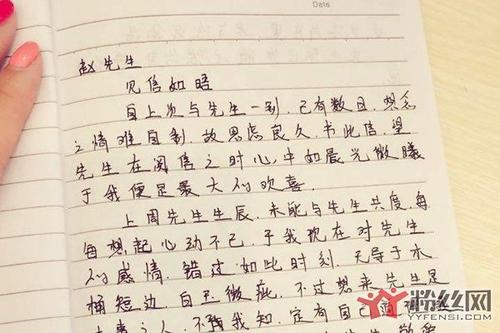 Date
赵先生
见信如晤
自上次与先生一别，已有数日，想念
之情难自制，故思虑良久，书此信，望
先生在阅信之时心中如晨光微曦
于我便是最大的欢喜。
上周先生生辰，未能与先生共度，每
每想起心动不已，于我现在对先生
的感情，错过如此时刻，无异于木
桶短边白玉微疵，不过想来先生是
之人，不需我知，定有自己
粉丝网
YYFENSI.COM